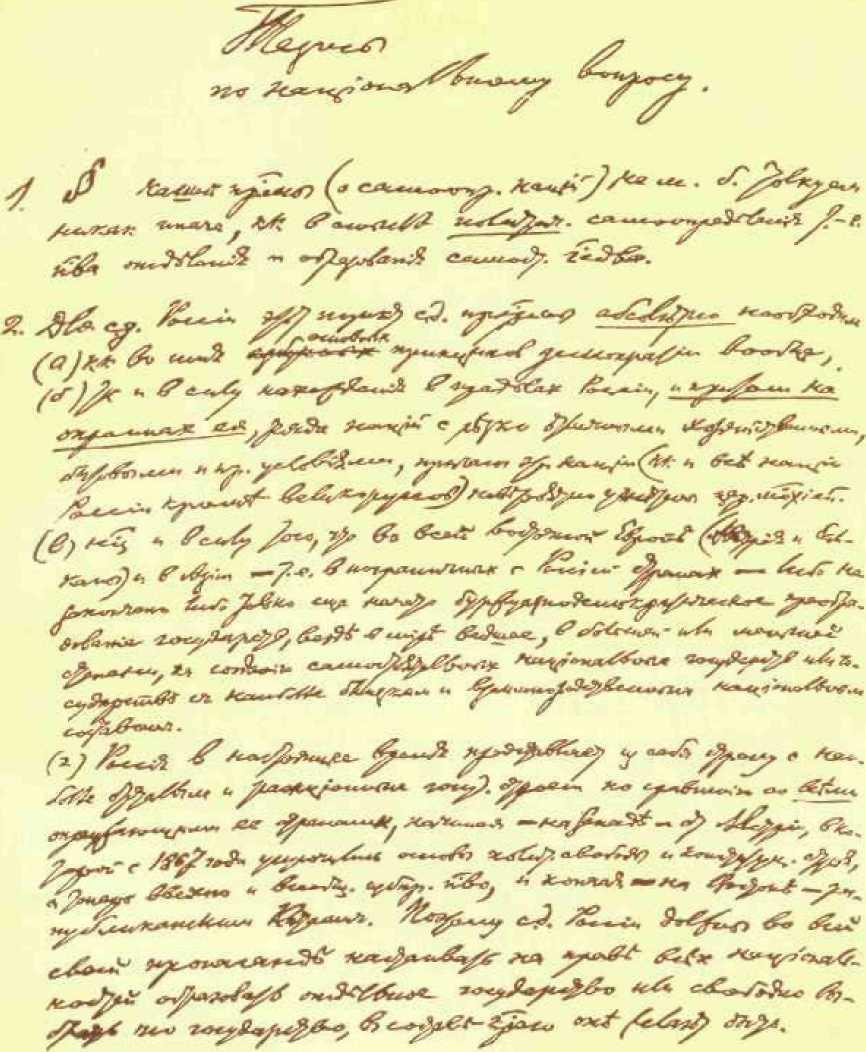 Тезисы
по національному вопросу.
1. § нашей программы (о самоопр. націй) не м. б. толкуем
никак иначе, кк в смысле политич. самоопределенія, т.-е.
права отделенія и образованія самост. госдва.
2. Для с.д. Россіи этот пункт с.д. программы абсолютно необходим
(а) кк во имя основных принципов демократіи вообще,
(б) тк и в силу нахожденія в пределах Россіи, и притом на
окраинах ее, ряда націй с резко отличными хозяйственными,
бытовыми и пр. условіями, причем эти націи (кк и все націи
Россіи кроме великоруссов) невероятно угнетены цар. монархіей.
(в) и в силу того, что во всей восточной Европе (Австрія и Бал-
каны) и в Азіи — т.е. в пограничных с Россіей странах — либо не
закончено либо только еще начато буржуазнодемократическое преобра-
зованіе государств, везде в міре ведшее, в большей или меньшей
степени, к созданію самостоятельных національных государств или го-
сударств с наиболее близким и родственным національным
составом.
(г) Россія в настоящее время представляет из себя страну с наи-
более отсталым и реакціонным госуд. строем по сравненію со всеми
окружающими ее странами, начиная — на Западе — от Австріи, в ко-
торой с 1867 года упрочились основы полит. свободы и конституц. строя,
а теперь введено и всеобщ. избир. право, и кончая — на Востоке — рес-
публиканским Китаем. Поэтому с.д. Россіи должны во всей
своей пропаганде настаивать на праве всех національ-
ностей образовать отдельное государство или свободно вы-
брать то государство, в составе коего оне желают быть.